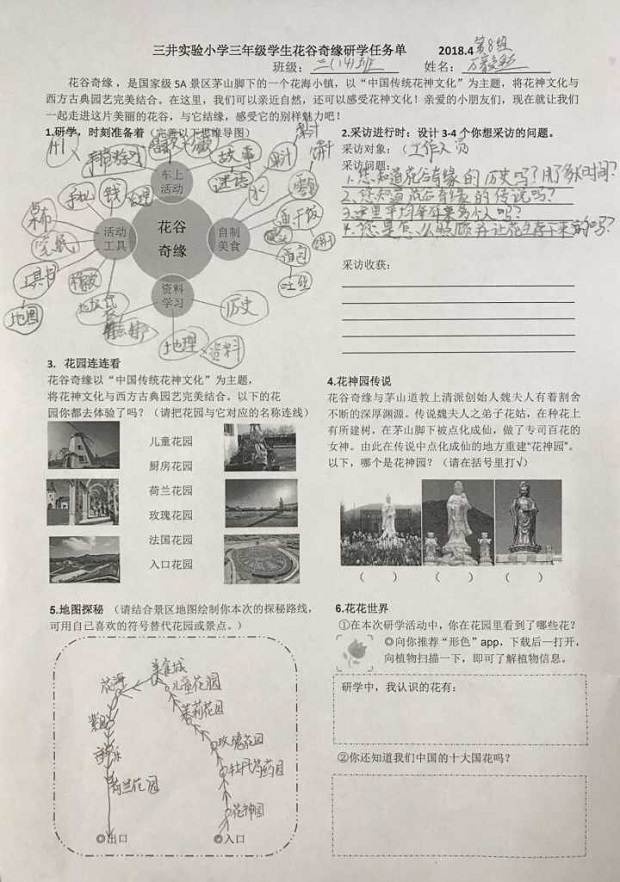 三井实验小学三年级学生花谷奇缘研学任务单 2018.4 第8组
班级： 三(14)班 姓名：
花谷奇缘，是国家级 5A 景区茅山脚下的一个花海小镇，以“中国传统花神文化”为主题，将花神文化与
西方古典园艺完美结合。在这里，我们可以亲近自然，还可以感受花神文化！亲爱的小朋友们，现在就让我们
一起走进这片美丽的花谷，与它结缘，感受它的别样魅力吧！
1.研学，时刻准备着（完善以下思维导图）
车上
活动
故事
谜语
花谷
奇缘
活动
工具
手机
钱
工具书
地图
自制
美食
果汁
饼干
水
面包
吐丝
资料
学习
历史
地理
资料
2.采访进行时：设计 3-4 个你想采访的问题。
采访对象：（工作人员
采访问题：
1.您知道花谷奇缘的历史吗？用了多久时间？
2.您知道花谷奇缘的传说吗？
3.这里平均每年来多少人吗？
4.您是怎么照顾并让花生存下来的吗？
采访收获：
3. 花园连连看
花谷奇缘以“中国传统花神文化”为主题，
将花神文化与西方古典园艺完美结合。以下的花
园你都去体验了吗？（请把花园与它对应的名称连线）
儿童花园
厨房花园
荷兰花园
玫瑰花园
法国花园
入口花园
4.花神园传说
花谷奇缘与茅山道教上清派创始人魏夫人有着割舍
不断的深厚渊源。传说魏夫人之弟子花姑，在种花上
有所建树，在茅山脚下被点化成仙，做了专司百花的
女神。由此在传说中点化成仙的地方重建“花神园”。
以下，哪个是花神园？（请在括号里打√）
（ ） （ ） （ ）
5.地图探秘 （请结合景区地图绘制你本次的探秘路线，
可用自己喜欢的符号替代花园或景点。）
花海
儿童花园
茉莉花园
玫瑰花园
牡丹芍药园
荷兰花园
花神园
◎出口 ◎入口
6.花花世界
①在本次研学活动中，你在花园里看到了哪些花？
◎向你推荐“形色”app，下载后一打开，
向植物扫描一下，即可了解植物信息。
研学中，我认识的花有：
②你还知道我们中国的十大国花吗？